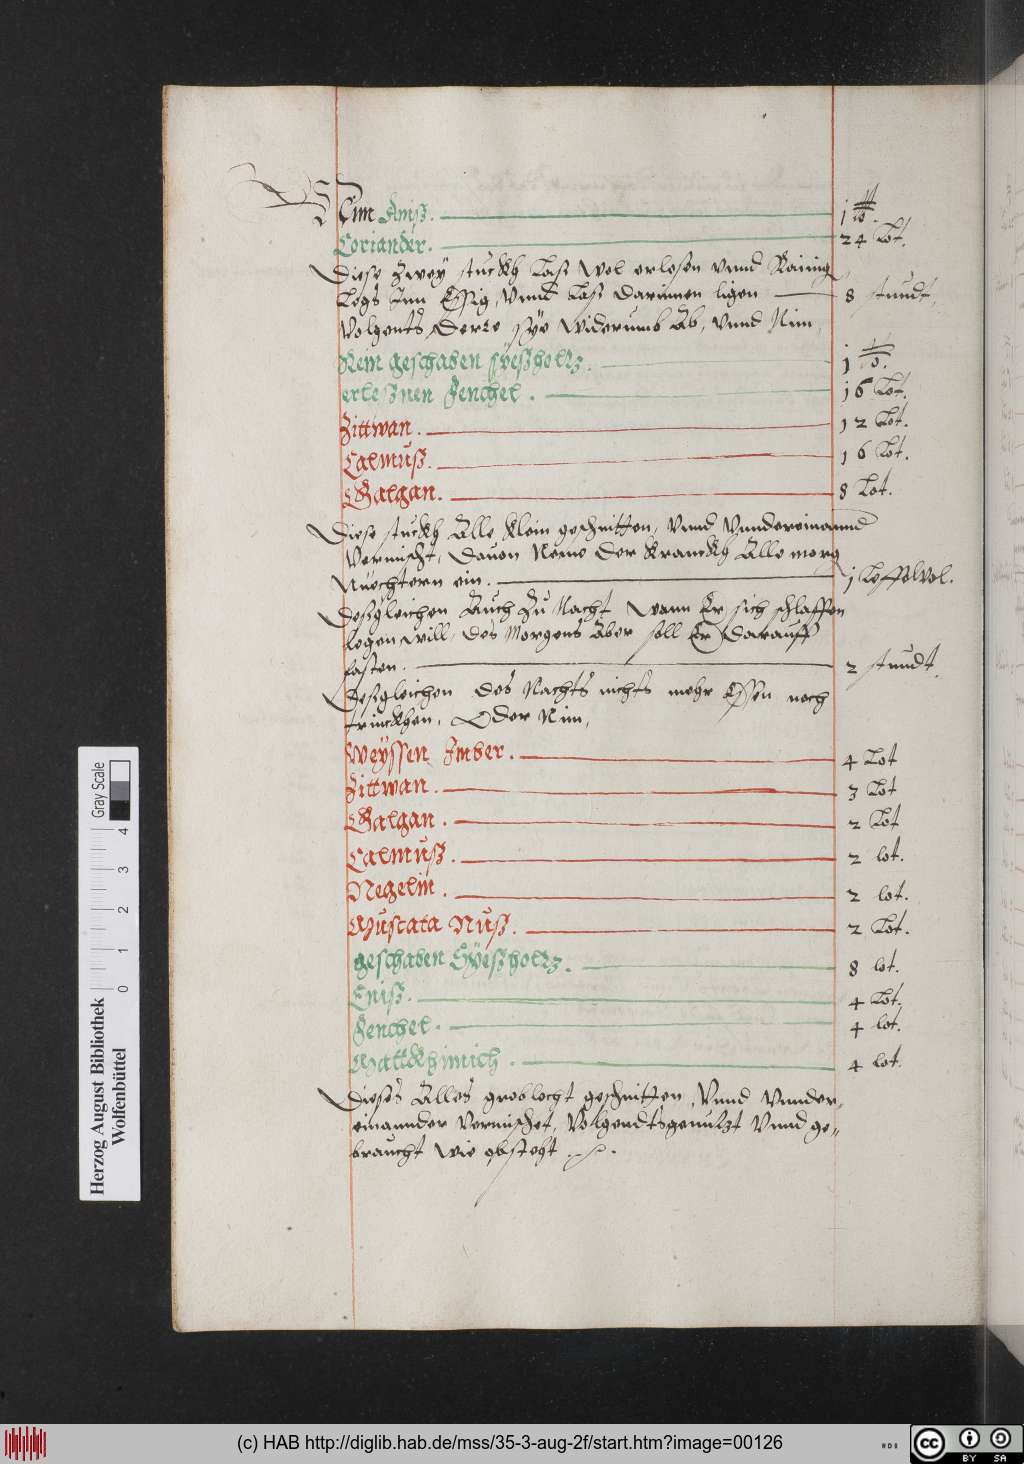 Nim Aniß. 1 ℔.
Coriander. 24 Lot.
Diese Zwey stuckh Laß Wol erlesen vnnd Rainig
Legs Inn Essig, Vnnd Laß darinnen ligen 8 stundt,
Volgents Derre sye Widerumb Ab, vnnd Nim,
Rein geschaben syeßholtz. 1 ℔.
erleßnen Fenchel. 16 Lot.
Zittwan. 12 Lot.
Calmuß. 16 Lot.
Galgan. 8 Lot.
Diese stuckh Alle klein geschnitten, Vnnd Vndereinannd
Vermischt, dauon Neme der kranckh Alle morg
Nuechtern ein. 1 Loffelvol.
Deßgleichen Auch Zu Nacht Wann Er sich schlaffen
legen will, des Morgens Aber soll Er Darauff
fasten. 2 stundt.
Deßgleichen des Nachts nichts mehr Essen noch
trinckhen. Oder Nim,
Weyssen Imber. 4 Lot
Zittwan. 3 Lot
Galgan. 2 Lot
Calmuß. 2 lot.
Negelin. 2 lot.
Muscata Nuß. 2 Lot.
geschaben Syeßholtz. 8 lot.
Eniß. 4 Lot.
Fenchel. 4 lot.
Mattkhimich. 4 lot.
Dieses Alles groblecht geschnitten, Vnnd Vnnder-
einannder Vermischet, Volgendts genutzt Vnnd ge-
braucht Wie obsteht.
Herzog August Bibliothek
Wolfenbüttel
0 1 2 3 4
Gray Scale
(c) HAB http://diglib.hab.de/mss/35-3-aug-2f/start.htm?image=00126
cc BY SA